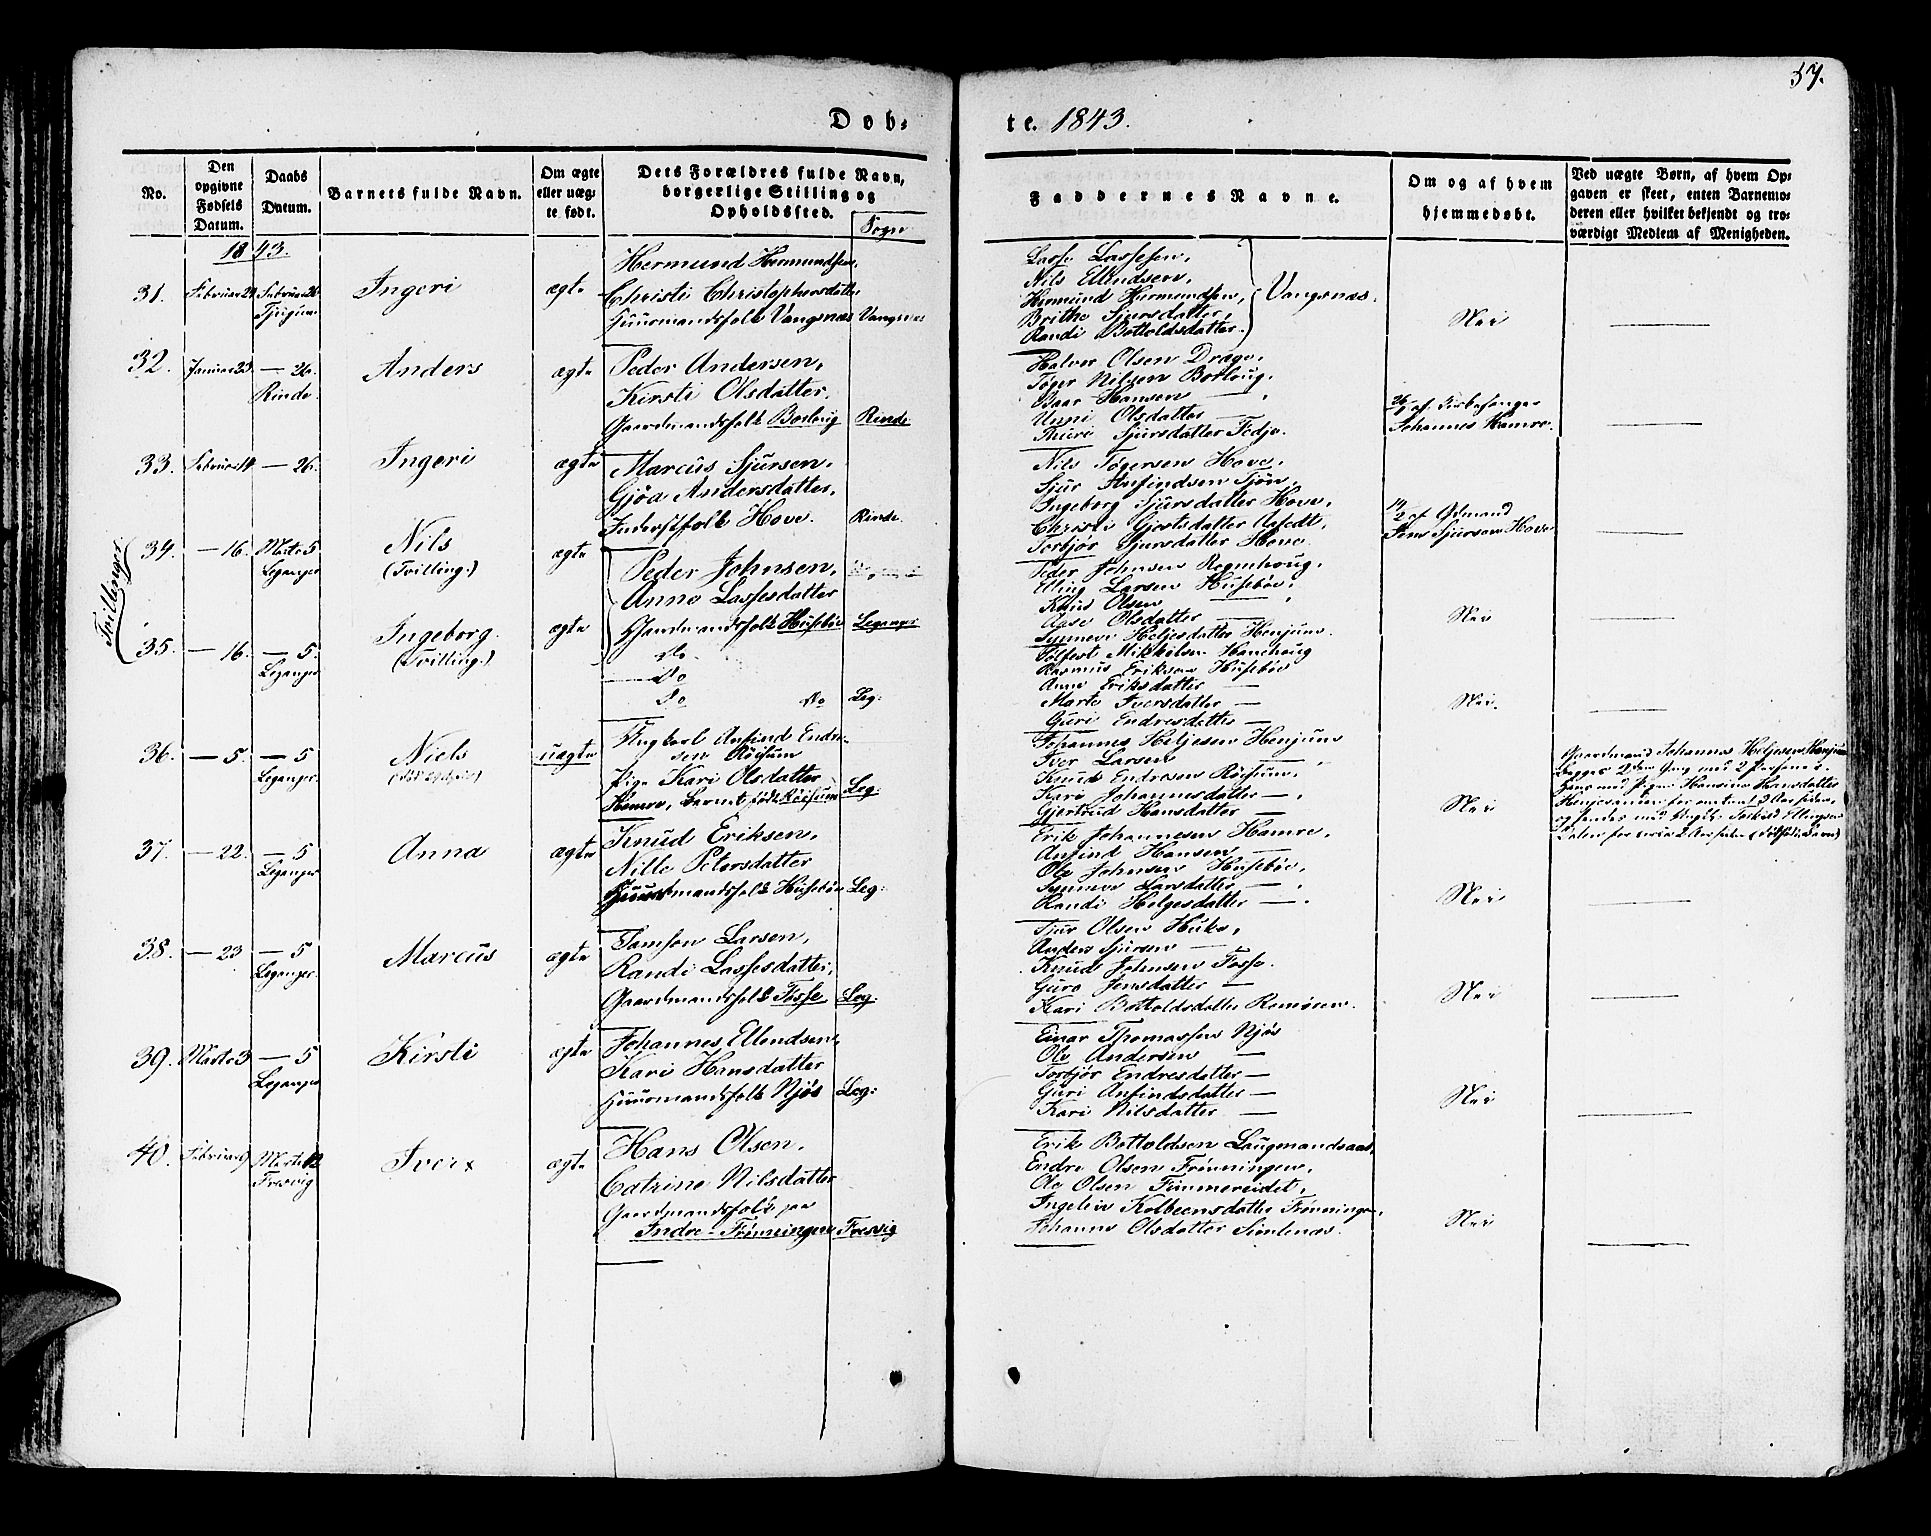 57.
Døb-
te. 1843.
No.
Den opgivne Fødsels Datum.
Daabs Datum.
Barnets fulde Navn.
Om ægte eller uæg-
te født.
Dets Forældres fulde Navn,
borgerlige Stilling og
Opholdssted.
Sogn
Faddernes Navne.
Om og af hvem
hjemmedøbt.
Ved uægte Børn, af hvem Op-
gaven er skeet, enten Barnemo-
deren eller hvilket bekjendt og tro-
værdigt Medlem af Menigheden.
1843.
31.
Februar
Februar 26
Ingeri
ægte
Hermund Hermundsen,
Christi Christophersdatter
Huusmandsfolk Vangsnæs
Vangsnæs
Lasse Lassesen,
Nils Ellendsen,
Hermund Hermundsen,
Brithe Sjursdatter,
Randi Bottoldsdatter.
Vangsnæs.
Nei
32.
Januar 23.
— 26.
Rinde.
Anders
ægte
Peder Andersen,
Kirsti Olsdatter,
Gaardmandsfolk Borlaug
Rinde
Halvor Olsen Drage,
Tøger Nilsen Borlaug,
Baar Hansen — ,
Unni Olsdatter —
Thuri Sjursdatter Fedje.
26/1 af Kirkesanger
Johannes Hamre.
33.
Februar 14
— 26.
Ingeri
ægte
Marcus Sjursen,
Gjøa Andersdatter,
Inderstfolk Hove.
Rinde.
Nils Tøgersen Hove,
Sjur Anfindsen Tjøn,
Ingeborg Sjursdatter Hove,
Christi Gjertsdatter
Torbjør Sjursdatter Hove.
14/2 af
Jens Sjursen Hove
Tvillinger.
34.
— 16.
Marts 5
Leganger
Nils
(Tvilling.)
ægte
Peder Johnsen,
Anna Lassesdatter
Gaardmandsfolk Husebøe
Leganger
Peder Johnsen
Elling Larsen Husebøe,
Knud Olsen — ,
Olsdatter —
Synneve Heljesdatter Henjum.
Nei
35.
— 16.
— 5.
Leganger
Ingeborg.
(Tvilling.)
ægte
Do
Do
Do Do
Leg:
Tolfest Mikkelsen
Rasmus Eriksen Husebøe
Anna Eriksdatter —
Marte Iversdatter —
Guri Endresdatter —
Nei.
36.
— 5.
— 5
Leganger.
Niels
uægte
Ungkarl Anfind Endre-
sen Röisum
Pige Kari Olsdatter
Hamre, Barnet født Röisum
Leg:
Johannes Heljesen Henjum
Iver Larsen —
Knud Endresen Röisum,
Kari Johannesdatter — ,
Gjertrud Hansdatter —
Nei
Gaardmand Johannes Heljesen Henjum
37.
— 22.
— 5
Leganger
Anna
ægte
Knud Eriksen,
Nille Petersdatter
Huusmandsfolk Husebøe
Leg:
Erik Johannesen Hamre,
Anfind Hansen —
Ole Johnsen Husebøe,
Synneve Larsdatter — ,
Randi Helgesdatter — .
Nei
38.
— 23
— 5
Leganger.
Marcus
ægte
Samson Larsen,
Randi Lassesdatter,
Gaardmandsfolk Fosse,
Leg:
Sjur Olsen Huke,
Anders Sjursen —
Knud Johnsen Fosse.
Guro Jensdatter —
Kari Bottoldsdatter
Nei
39.
Marts 3
— 5
Leganger
Kirsti
ægte
Johannes Ellendsen,
Kari Hansdatter
Huusmandsfolk Njøs
Leg:
Einar Thomassen Njøs
Ole Andersen —
Torbjør Endresdatter —
Guri Anfindsdatter —
Kari Nilsdatter —
Nei
40.
Februar 9
Marts 12
Fresvig
Iver x
ægte
Hans Olsen,
Catrine Nilsdatter
Gaardmandsfolk paa
Indre-Frønningen
Fresvig
Erik Bottoldsen Laugmandsaas,
Endre Olsen Frønningen,
Ole Olsen Timmereidet,
Ingeleiv Kolbeensdatter Frønningen,
Johanne Olsdatter Simlenæs.
Nei